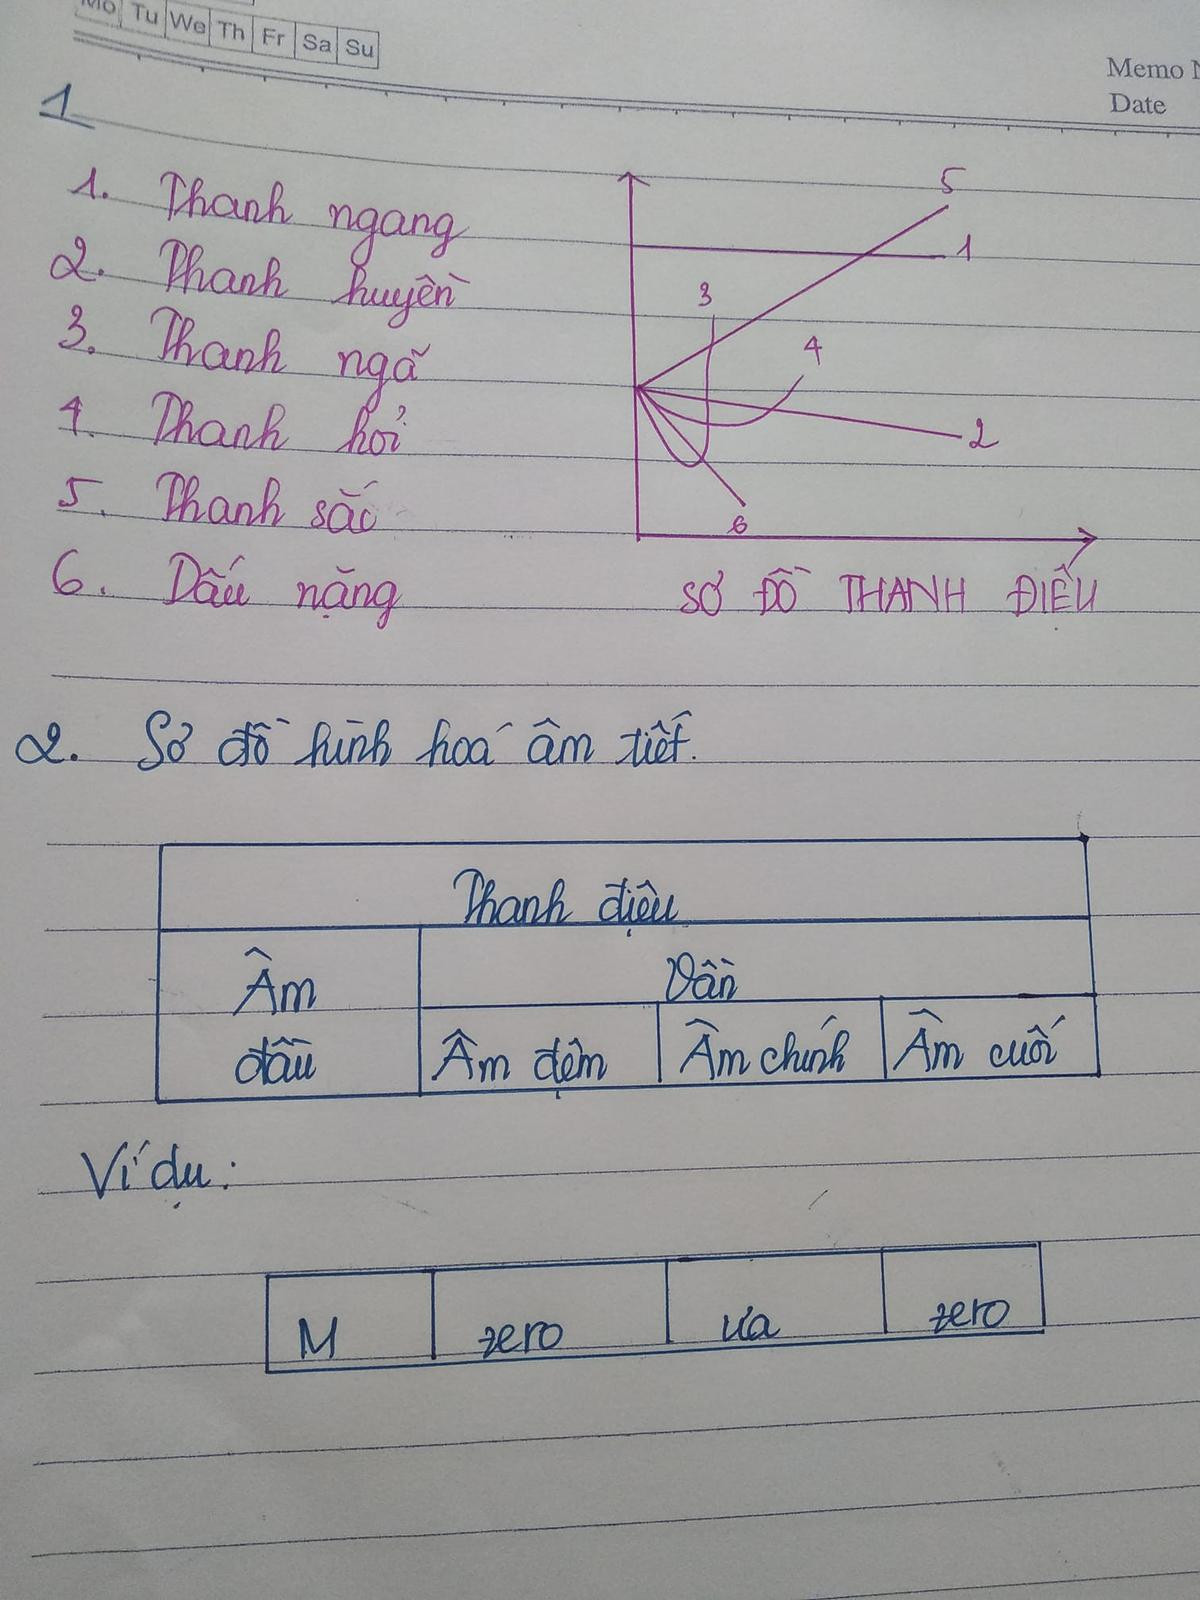 Mo Tu We Th Fr Sa Su
Memo N
Date
1
1. Thanh ngang
2. Thanh huyền
3. Thanh ngã
4. Thanh hỏi
5. Thanh sắc
6. Dấu nặng
5
1
3
4
2
6
SƠ ĐỒ THANH ĐIỆU
2. Sơ đồ hình hoá âm tiết.
Thanh điệu
Âm
đầu
Vần
Âm đệm
Âm chính
Âm cuối
Ví dụ:
M zero ưa zero